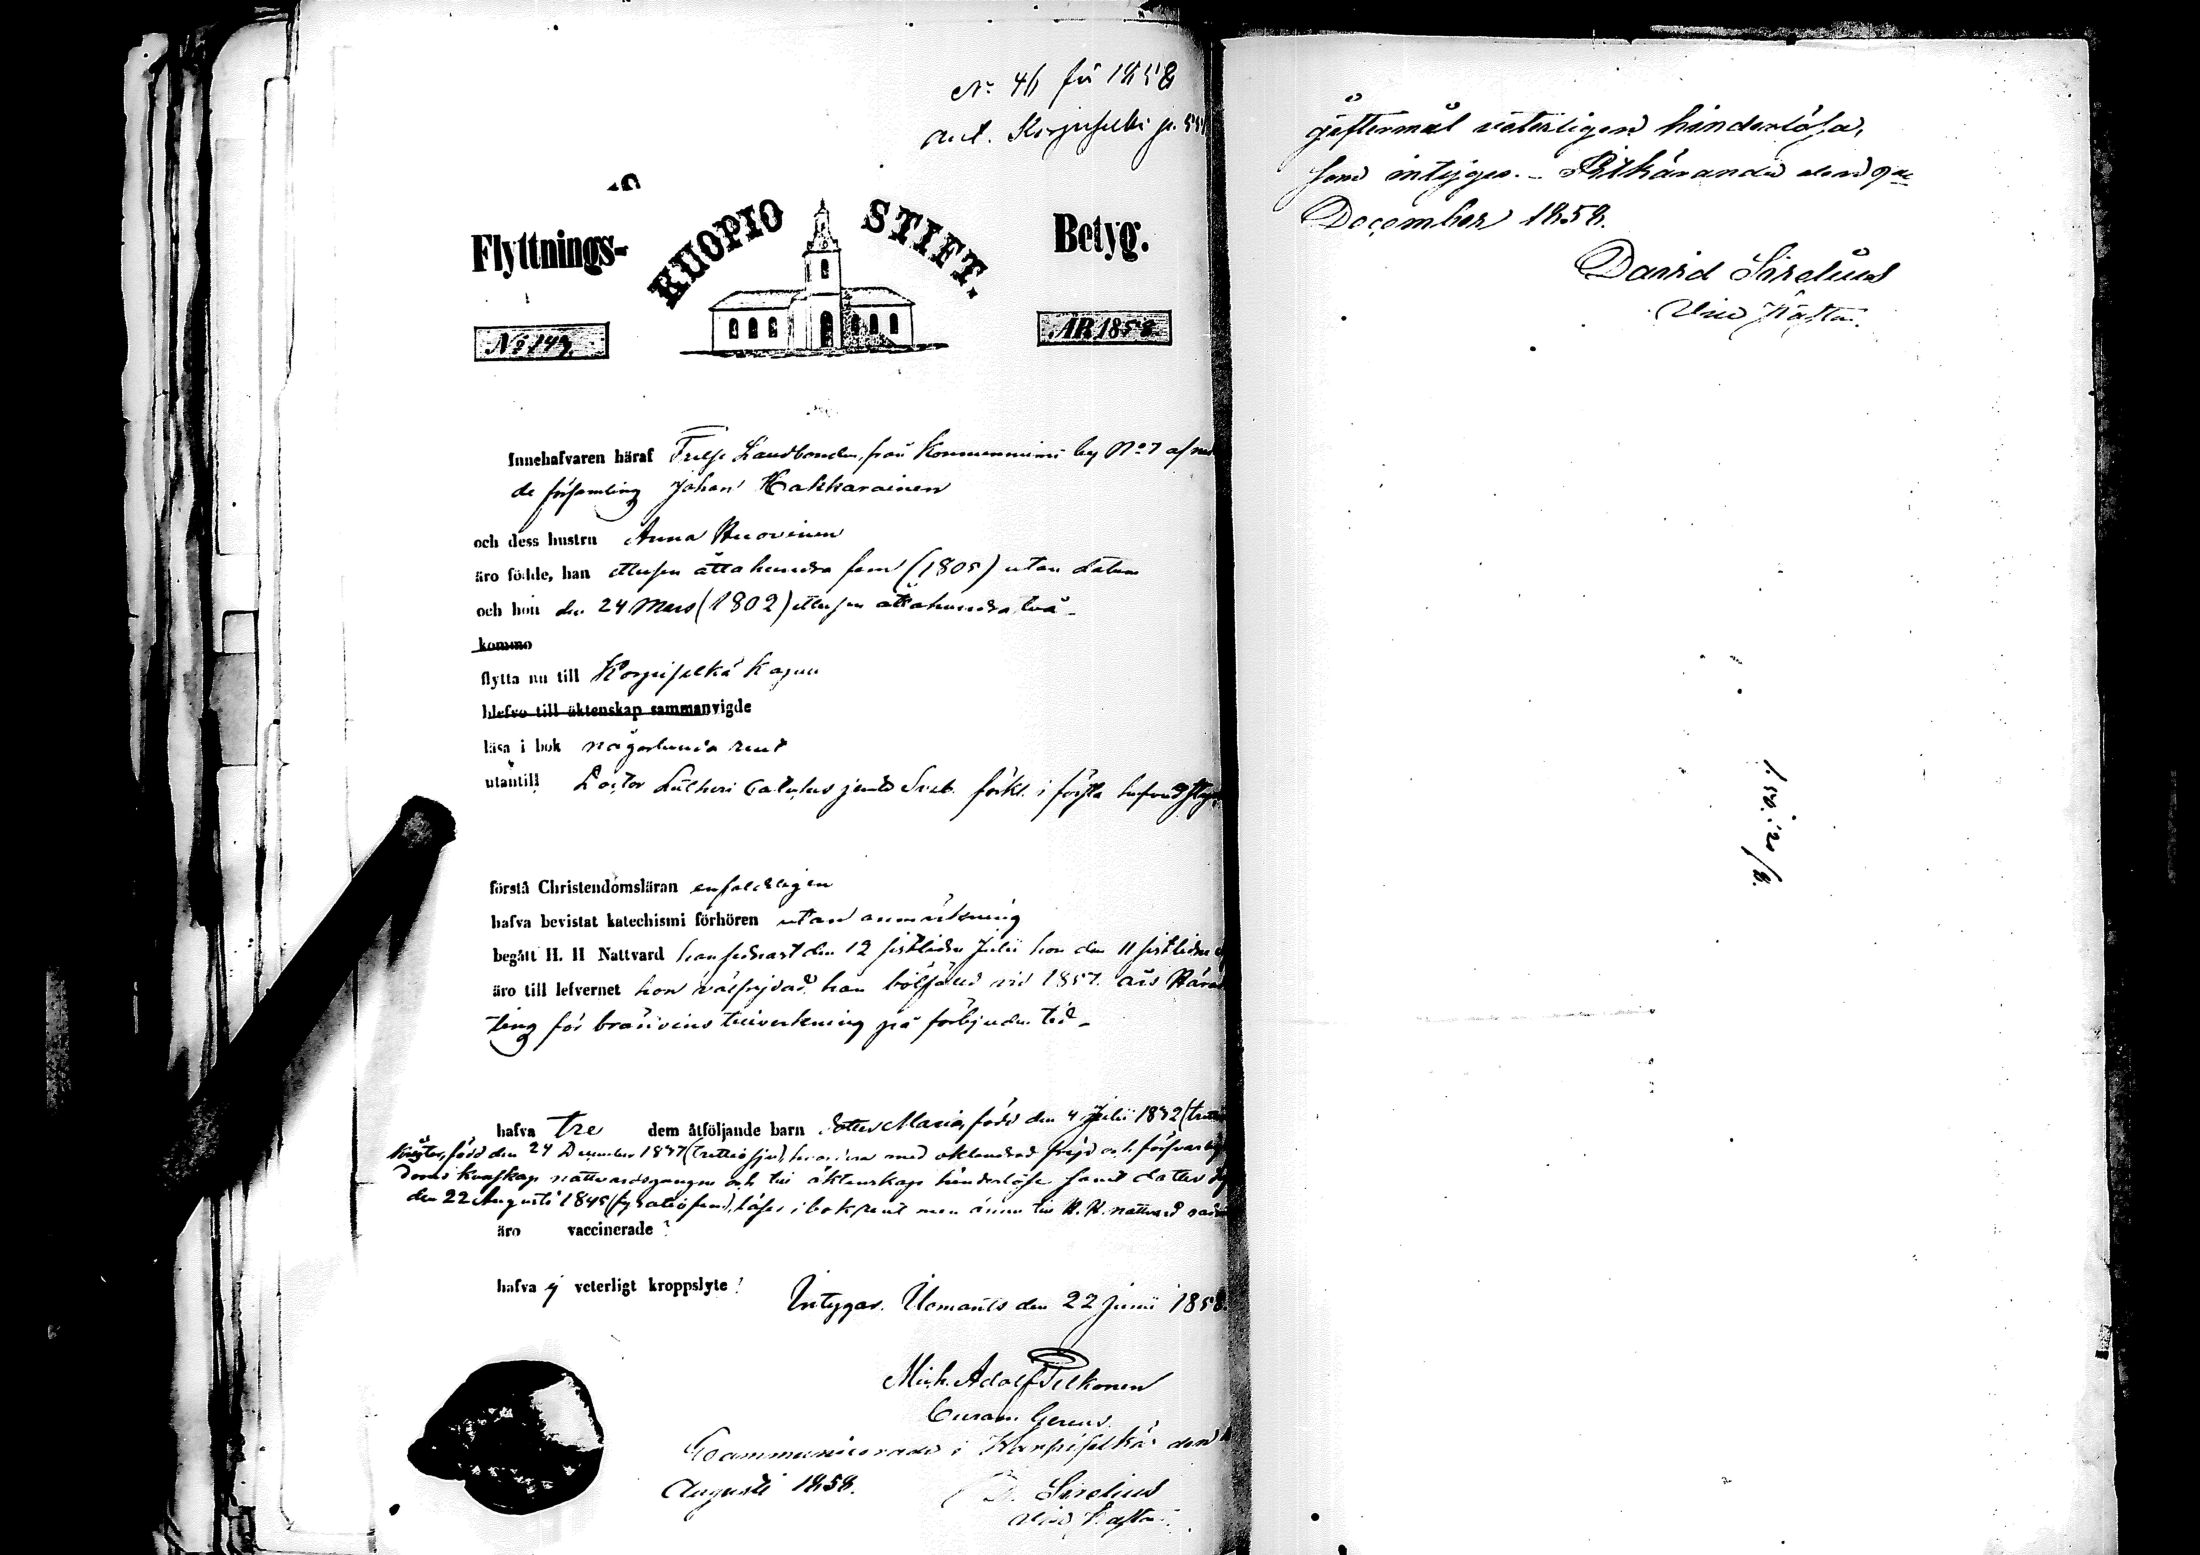 No 46 för 1858
ant. Korpiselkä p.
Flyttnings-
KUOPIO STIFT.
Betyg.
No 149.
ÅR 1858
Innehafvaren häraf Frelse Landbonden, från Kommunnimi by No 7 af
de församling Johan Hakkarainen
och dess hustru Anna Huovinen
äro födde, han ettusen åttahundra fem (1805) utan datum
och hon den 24 Mars (1802) ettusen åttahundra två
kommo
flytta nu till Korpiselkä Kapell
blefvo till äktenskap sammanvigde
läsa i bok någorlunda rent
utantill Doctor Lutheri Cateches jemte Sveb. förkl. i första hufvudstycket
förstå Christendomsläran enfaldeligen
hafva bevistat katechismi förhören utan anmärkning
begått H. H Nattvard han sednast den 12 sistlidne Julii hon den 11 sistlidne
äro till lefvernet hon välfrejdad, han bötfälld vid 1857 års
ting för bränvins tillverkning på förbjuden tid
hafva tre dem åtföljande barn dotter Maria, född den 4 Julii 1832
född den 24 December 1837 (trettiosju), med oklandrad frejd och försvarlig
doms kunskap nattvardsgångna och till äktenskap hinderlöse samt dotter
den 22 Augusti 1845 (fyratiofem), läser i bok rent men ännu till H. H. nattvard
äro vaccinerade
hafva ej veterligt kroppslyte!
Intygar. Ilomants den 22 Junii 1858.
Mich. Adolf Pelkonen
Curam Gerens.
Communicerades i Korpiselkä den
Augusti 1858.
D. Sirelius
Vice Pastor.
giftermål veterligen hinderlösa,
som intygas. - Pitkäranda den 9de
December 1858.
David Sirelius
Vice Pastor.